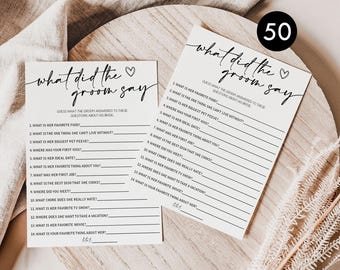 50
what did the
groom say
GUESS WHAT THE GROOM ANSWERED TO THESE
QUESTIONS ABOUT HIS BRIDE.
1. WHAT IS HER FAVORITE
2. WHAT IS THE ONE THING SHE CAN'T LIVE WITHOUT?
3. WHAT IS HER BIGGEST PET PEEVE?
4. WHERE WAS YOUR FIRST KISS?
5. WHAT IS HER IDEAL DATE?
6. WHAT IS HER FAVORITE THING ABOUT YOU?
7. WHAT WAS HER FIRST JOB?
8. WHAT IS THE BEST DISH THAT SHE COOKS?
9. WHERE DID YOU MEET?
10. WHAT CHORE DOES SHE REALLY HATE?
11. WHAT IS HER FAVORITE TV SHOW?
12. WHERE DOES SHE WANT TO TAKE A VACATION?
13. WHAT IS HER FAVORITE MOVIE?
14. WHAT IS YOUR FAVORITE THING ABOUT HER?
what did the
groom say
GUESS WHAT THE GROOM ANSWERED TO THESE
QUESTIONS ABOUT HIS BRIDE.
1. WHAT IS HER FAVORITE
2. WHAT IS THE ONE THING SHE CAN'T LIVE WITHOUT?
3. WHAT IS HER BIGGEST PET PEEVE?
4. WHERE WAS YOUR FIRST KISS?
5. WHAT IS HER IDEAL DATE?
6. WHAT IS HER FAVORITE THING ABOUT YOU?
7. WHAT WAS HER FIRST JOB?
8. WHAT IS THE BEST DISH THAT SHE COOKS?
9. WHERE DID YOU MEET?
10. WHAT CHORE DOES SHE REALLY HATE?
11. WHAT IS HER FAVORITE TV SHOW?
12. WHERE DOES SHE WANT TO TAKE A VACATION?
13. WHAT IS HER FAVORITE MOVIE?
14. WHAT IS YOUR FAVORITE THING ABOUT HER?